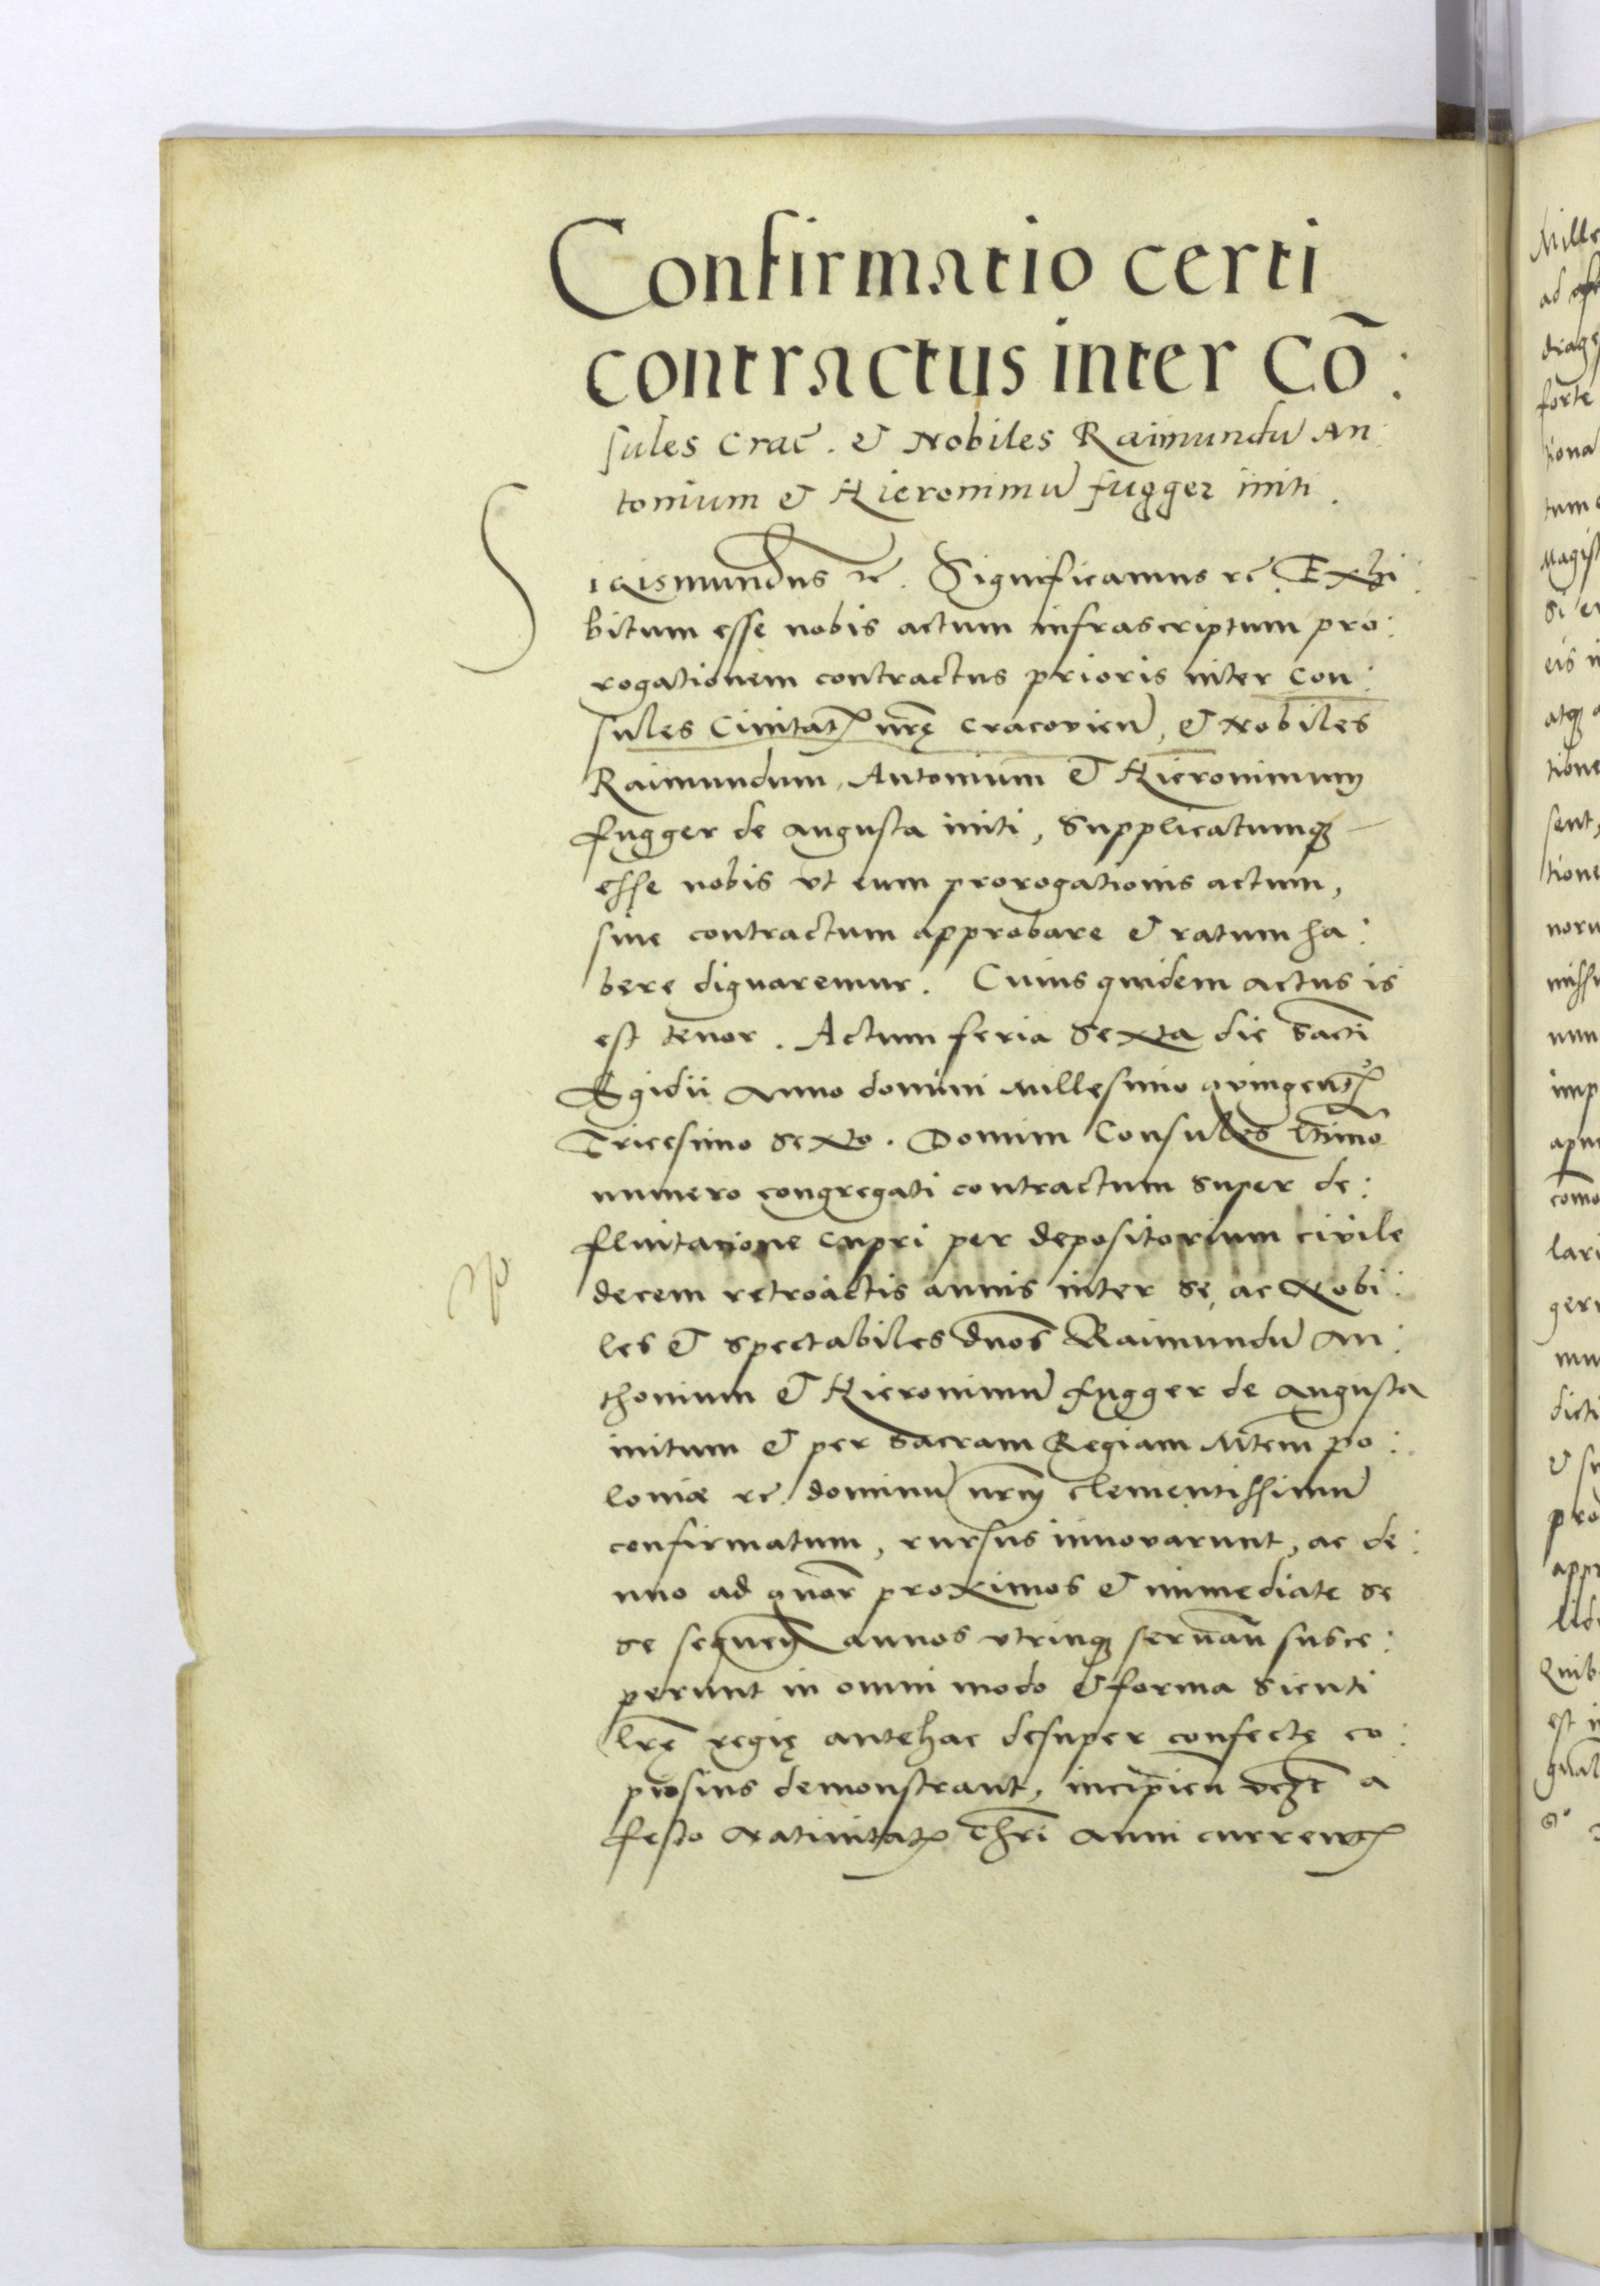 Confirmatio certi
contractus inter Cō:
sules Crac̄. & Nobiles Raimundū An:
tonium & Hieronimū fugger initi.
Sigismundus ꝛc. Significamus ꝛc. Exhi:
bitum esse nobis actum infrascriptum pro:
rogationem contractus prioris inter Con:
sules Ciuitatꝭ nrę̄ Cracovien̄, & Nobiles
Raimundum, Antonium & Hieronimum
fugger de Augusta initi, Supplicatumqꝫ
esse nobis vt eum prorogationis actum,
siue contractum approbare & ratum ha:
bere dignaremur. Cuius quidem actus is
est tenor. Actum feria Sexta die Sācti
Egidii Anno domini Millesimo quingentꝭ
Tricesimo Sexto. Domini Consules
numero congregati contractum Super de:
fluitacione cupri per depositorium civile
decem retroactis annis inter se, ac Nobi:
les & Spectabiles dn̄os Raimundū An:
thonium & Hieronimū fugger de Augusta
initum & per Sacram Regiam Mtem̄ po:
loniæ ꝛc. dominū nrm̄ clementissimū
confirmatum, rursus innovarunt, ac de:
nuo ad proximos & immediate Se
se sequen̄ annos vtrinqꝫ seruan̄ susce:
perunt in omni modo & forma Sicuti
lrę̄ regię antehac desuper confectę co:
piosius demonstrant, incipien̄ a
festo Natiuitatꝭ Chr̄i anni currentꝭ
Mille
ad
forte
tiona
tum
Magist
Si
eis
atqꝫ
tione
sent,
tione
imp
como
lari
dicti
&
pro
appr
Quib
est